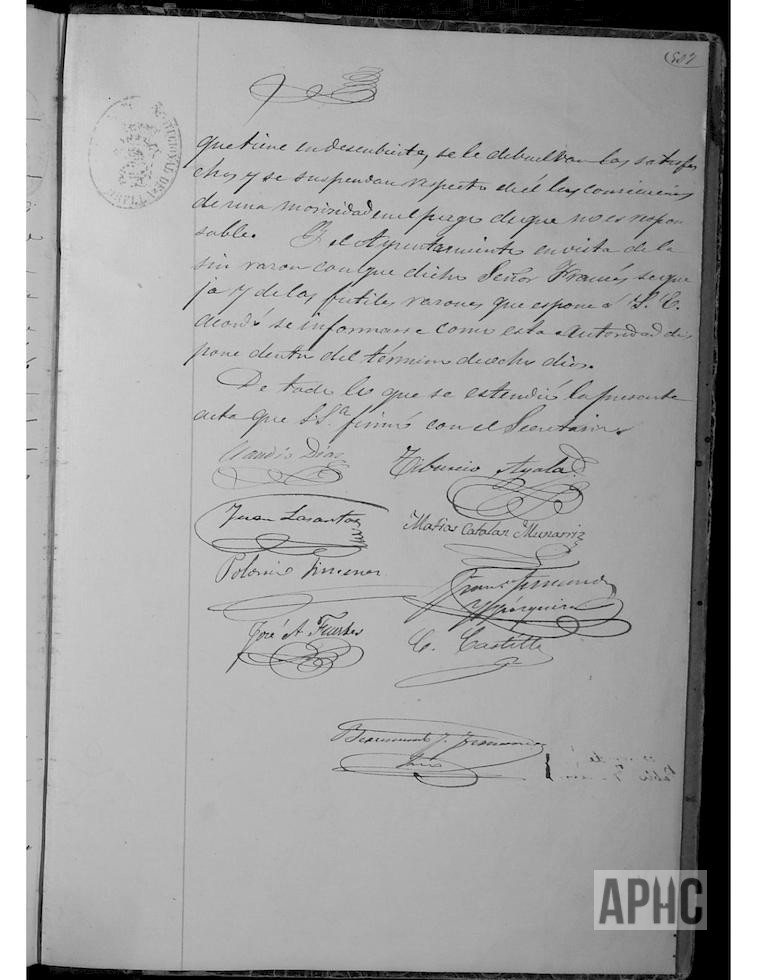 que tiene en descubierto, se le debuelvan los satisfe
chos y se suspendan respecto de él las consecuencias
de una morosidad en el pago de que no es respon
sable. Y el Ayuntamiento en vista de la
sin razon con que dicho Señor Francés se que
ja y de las futiles razones que espone a S. E.
acordó se informase como esta autoridad dis
pone dentro del término de ocho dias.
De todo lo que se estendió la presente
acta que S.Sª firmó con el Secretario.
Claudio Diaz
Tiburcio Ayala
Juan Lasantas
Matias Catalan Munarriz
Polonio Jimenez
Franco Jimeno
José A. Fuertes
C. Castillo
Srio
APHC